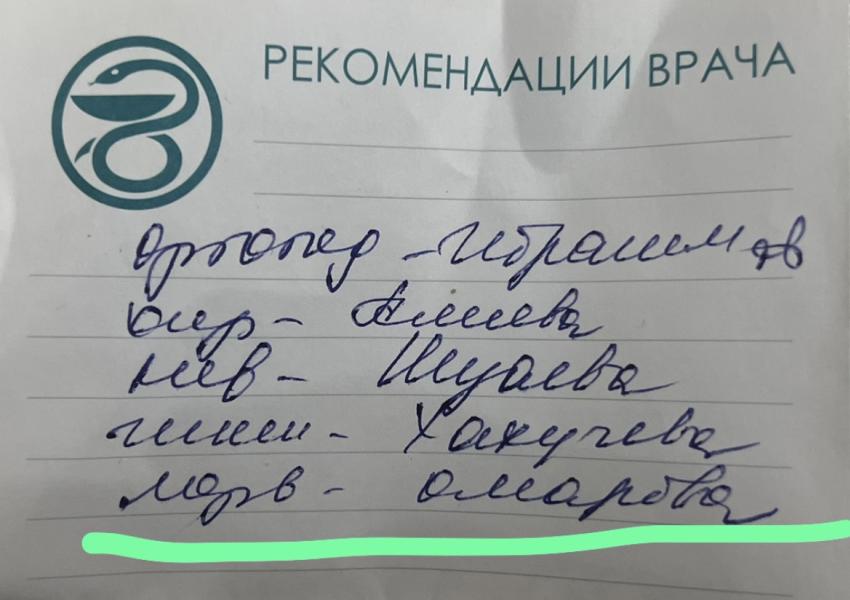 РЕКОМЕНДАЦИИ ВРАЧА
Ортопед - Ибрагимов
хир - Алиева
нев - Шуаева
гинек - Хакучева
лорв - Омарова